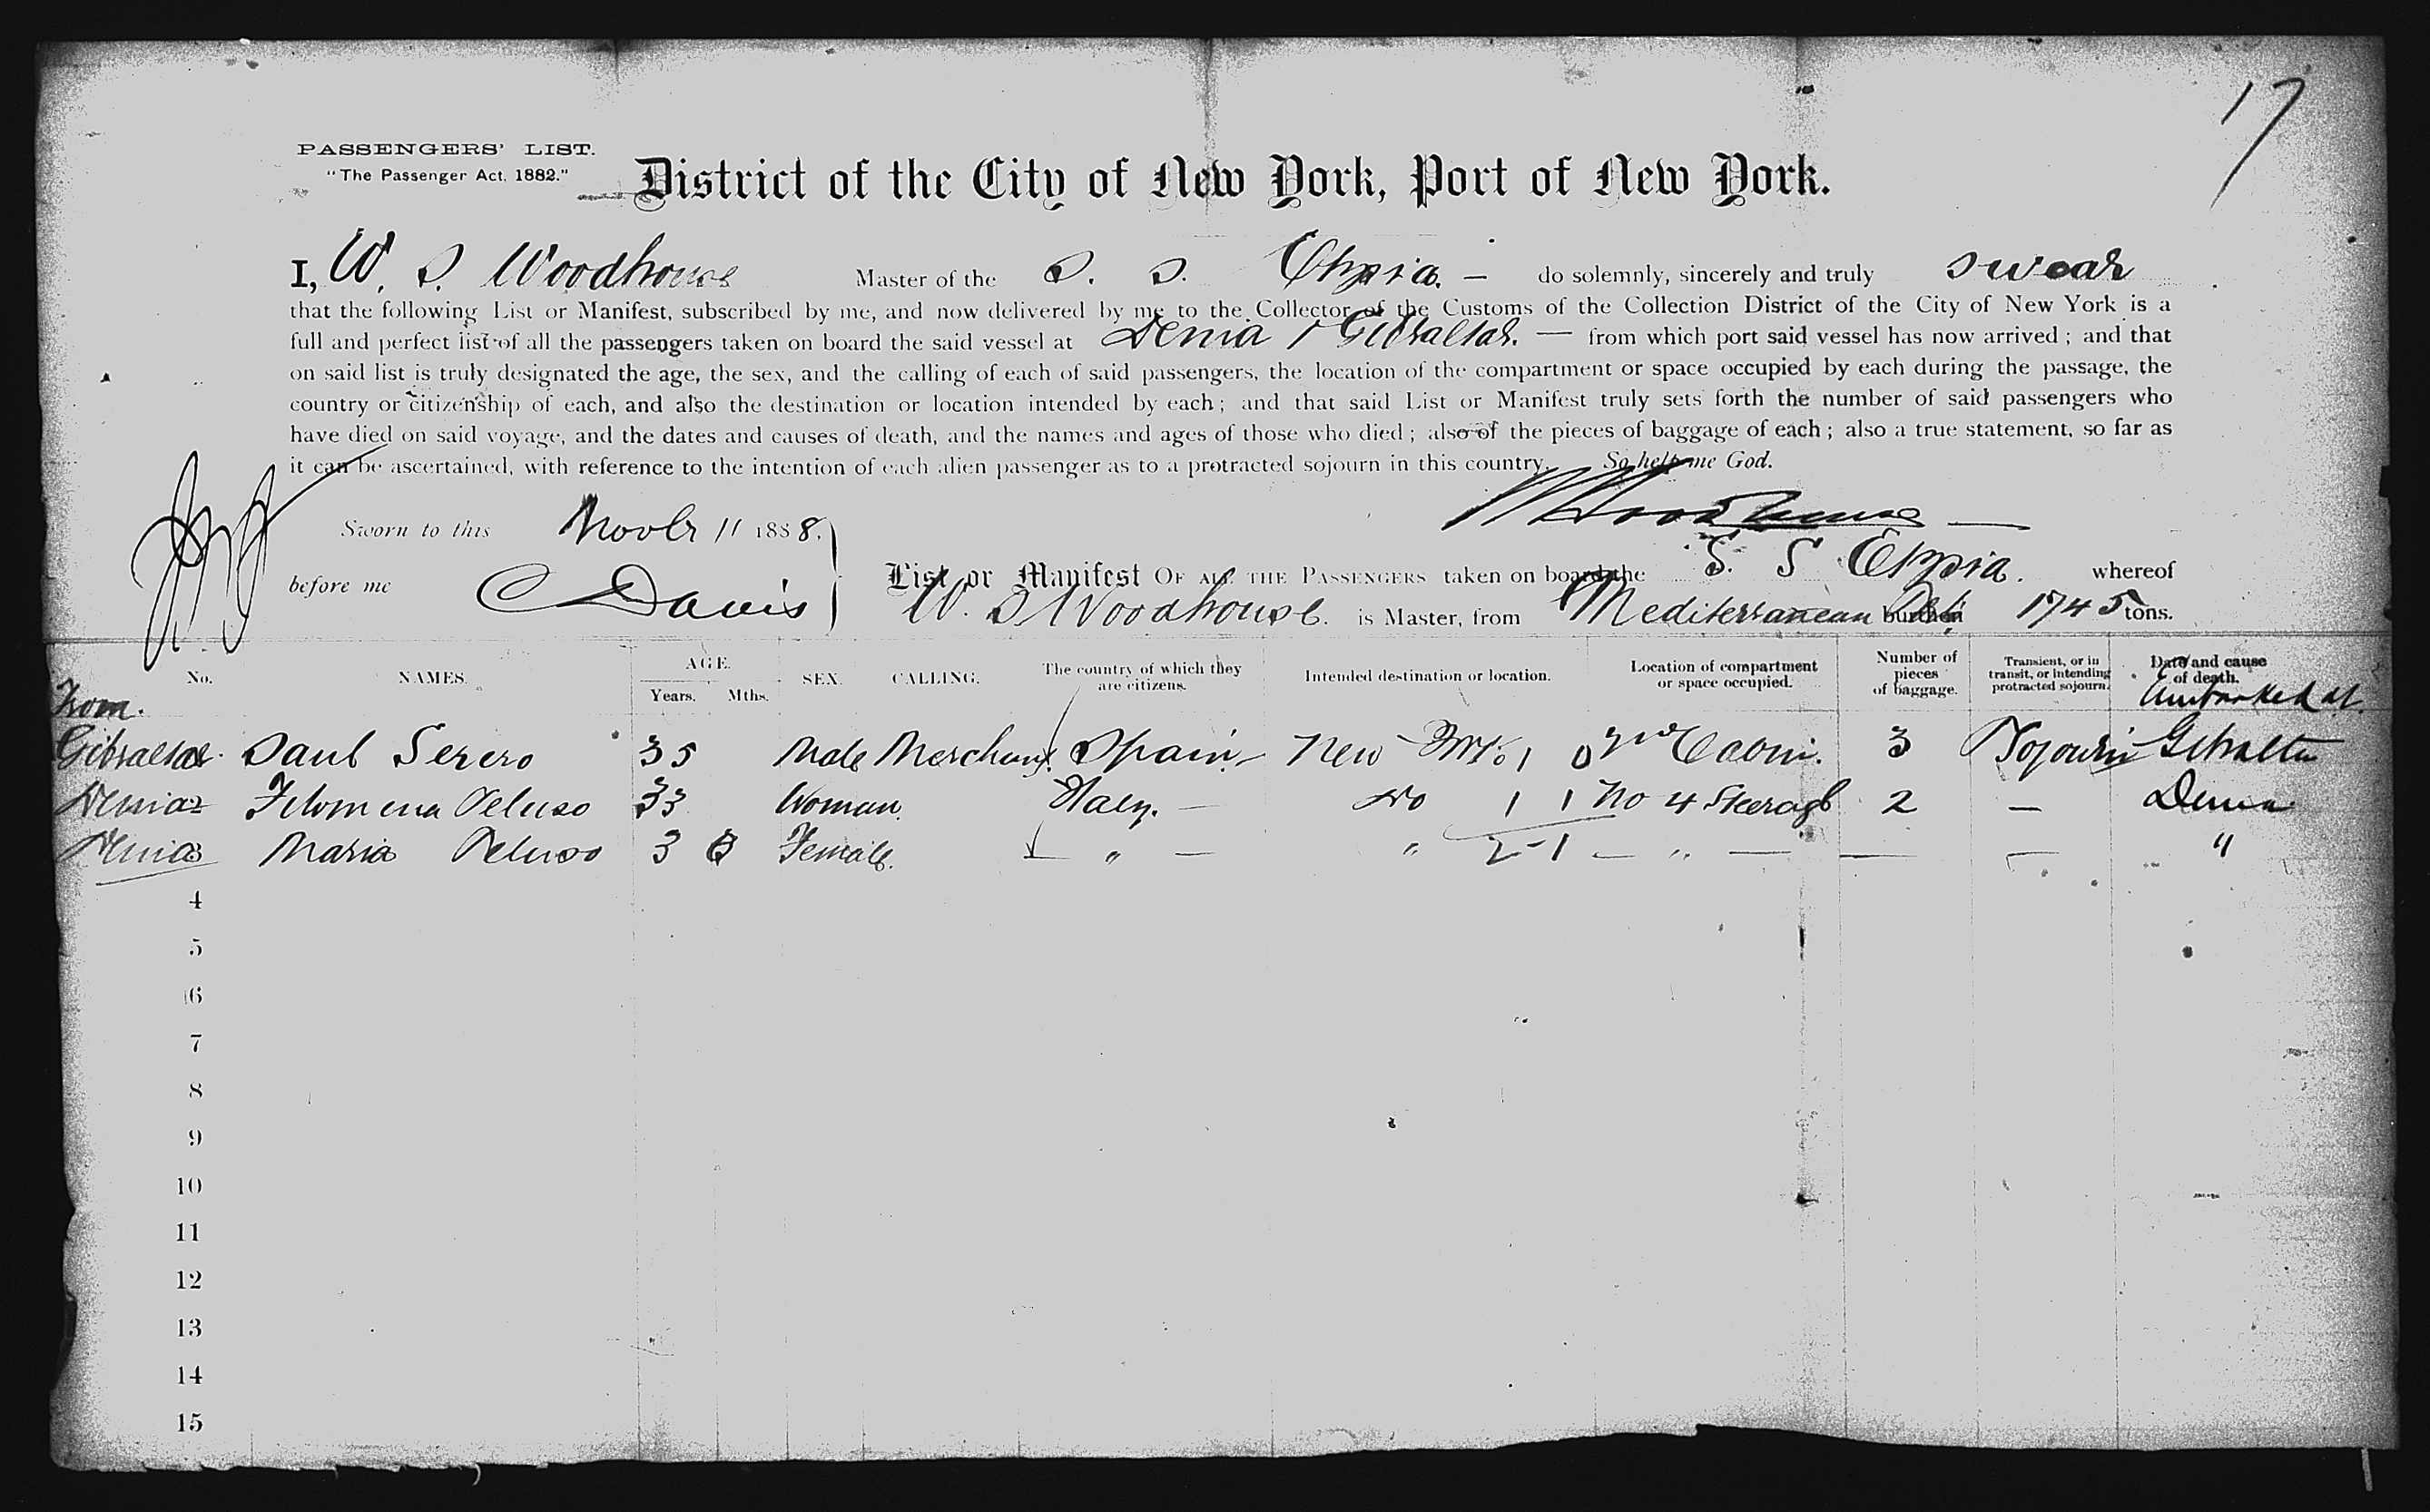 17
PASSENGERS' LIST.
"The Passenger Act, 1882."
District of the City of New York, Port of New York.
I, W. S. Woodhouse Master of the S. S. Elysia. — do solemnly, sincerely and truly swear
that the following List or Manifest, subscribed by me, and now delivered by me to the Collector of the Customs of the Collection District of the City of New York is a
full and perfect list of all the passengers taken on board the said vessel at Denia & Gibraltar. — from which port said vessel has now arrived; and that
on said list is truly designated the age, the sex, and the calling of each of said passengers, the location of the compartment or space occupied by each during the passage, the
country or citizenship of each, and also the destination or location intended by each; and that said List or Manifest truly sets forth the number of said passengers who
have died on said voyage, and the dates and causes of death, and the names and ages of those who died; also of the pieces of baggage of each; also a true statement, so far as
it can be ascertained, with reference to the intention of each alien passenger as to a protracted sojourn in this country. So help me God.
Sworn to this Novbr 11 1888. Woodhouse —
before me C Davis
List or Manifest OF ALL THE PASSENGERS taken on board the S. S Elysia. whereof
W. S Woodhouse. is Master, from Mediterranean burthen 1745 tons.
No. NAMES. AGE. Years. Mths. SEX. CALLING. The country of which they are citizens. Intended destination or location. Location of compartment or space occupied. Number of pieces of baggage. Transient, or in transit, or intending protracted sojourn. Date and cause of death.
From. Embarked at.
Gibraltar. Saul Serero 35 Male Merchant. Spain — New York 1 0 2nd Cabin. 3 Sojourn Gibraltar
Denia 2 Filomena Peluso 33 Woman. Italy. — do 1 1 No 4 Steerage 2 — Denia
Denia 3 Maria Peluso 3 Female. — " — " 2-1 — " — — — "
4
5
6
7
8
9
10
11
12
13
14
15